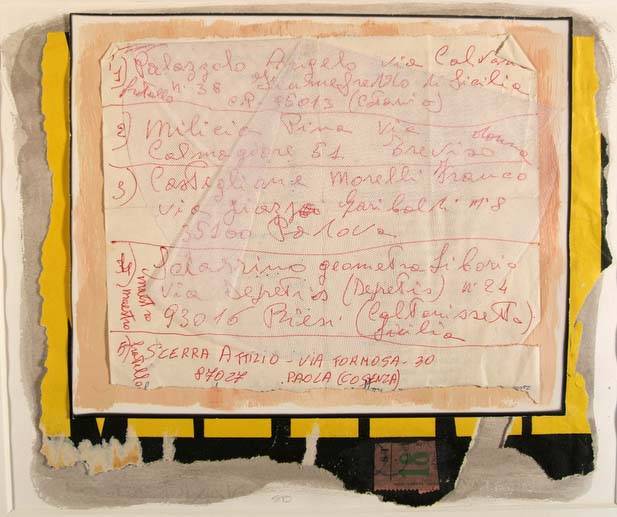 1) Palazzolo Angelo via
fratello n° 38 di Sicilia
95013 (Catania)
2) Milicia Pina via donna
Calmaggiore 51 Treviso
3) Castiglione Morelli Franco
via Garibaldi n° 8
35100 Padova
4) Salazzino geometra Liborio
maestro
via Depretis (Depretis) n° 24
93016 Riesi (Caltanissetta)
Sicilia
5) fratello
SCERRA ATTIZIO - VIA FORMOSA - 30
87027 PAOLA (COSENZA)
18